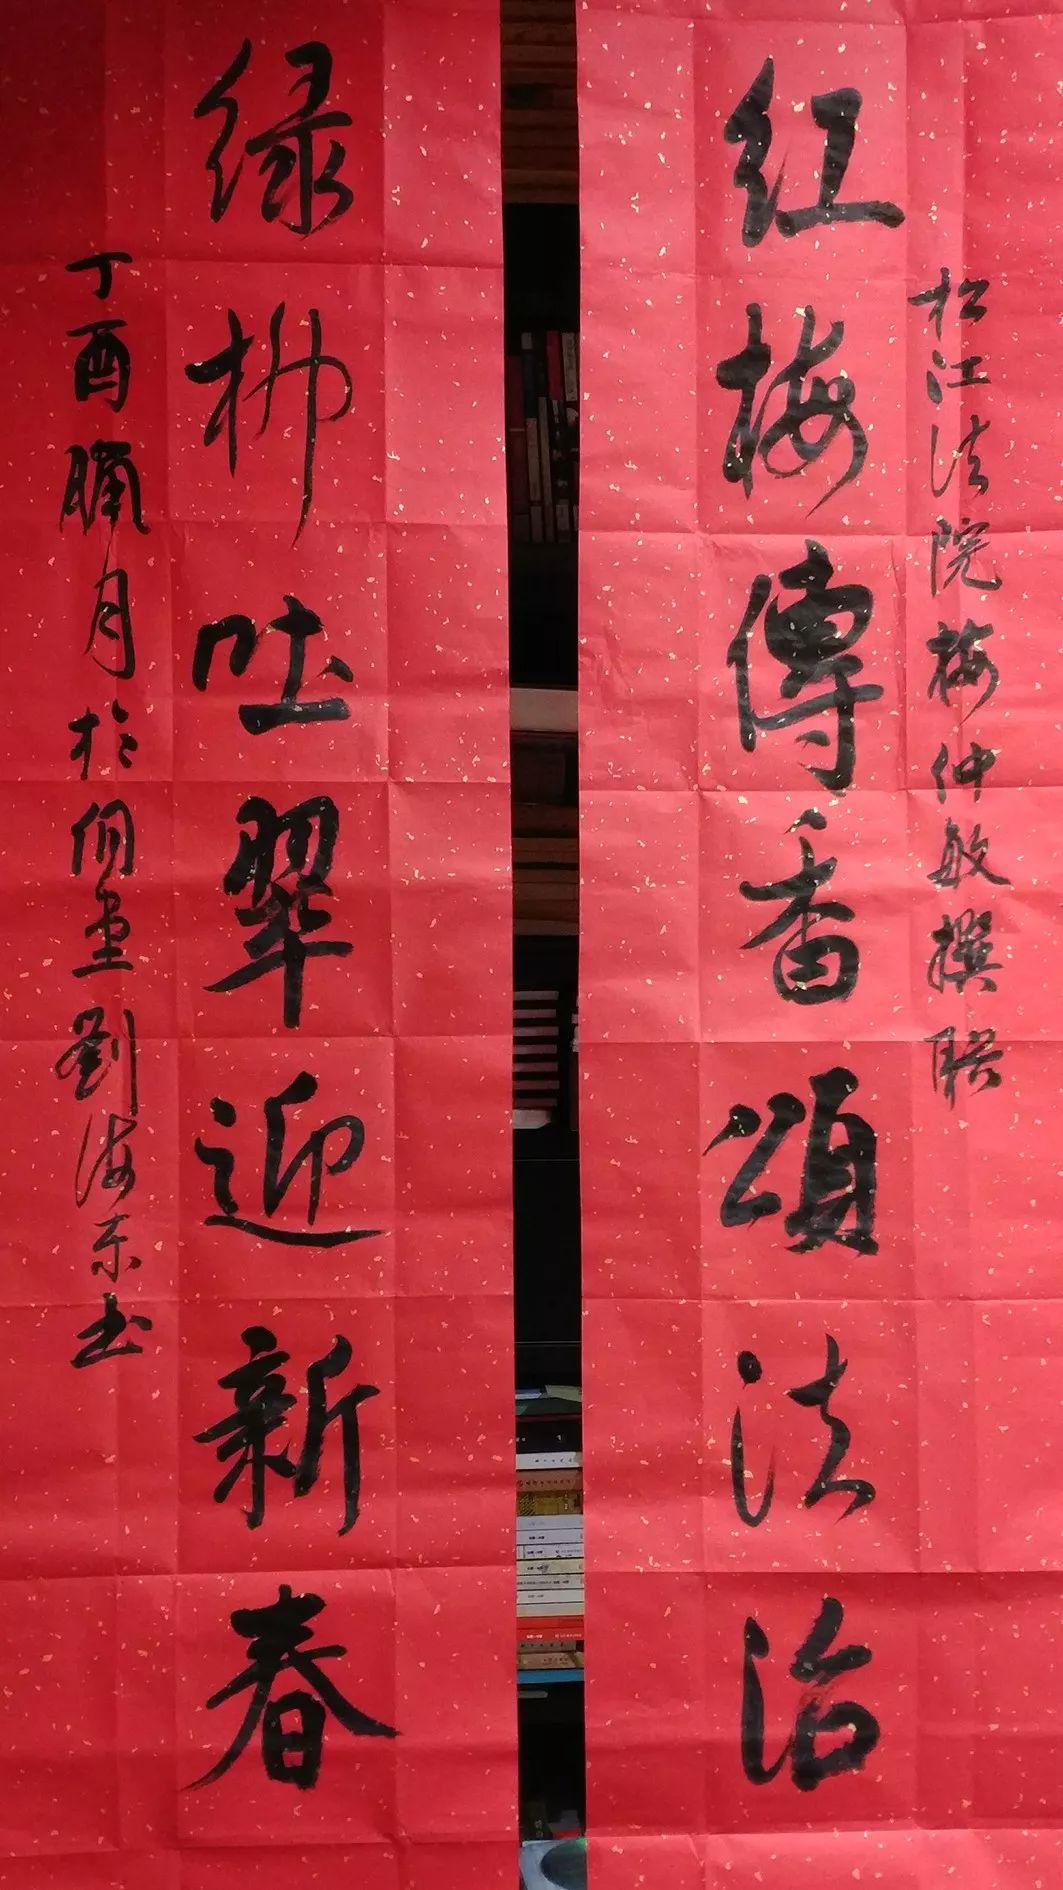 红梅傳香頌法治
松江法院梅仲敏撰联
绿柳吐翠迎新春
丁酉臘月於
劉海东书